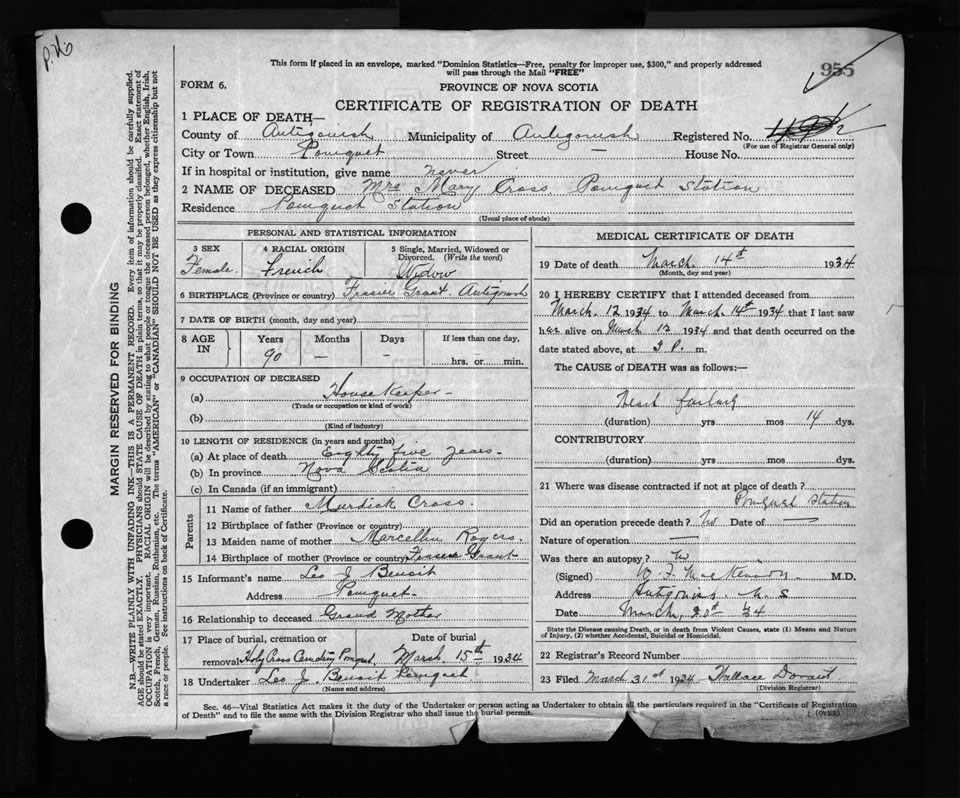 P.X
955
This form if placed in an envelope, marked "Dominion Statistics—Free, penalty for improper use, $300," and properly addressed
will pass through the Mail "FREE"
FORM 6.
PROVINCE OF NOVA SCOTIA
CERTIFICATE OF REGISTRATION OF DEATH
1 PLACE OF DEATH—
County of Antigonish Municipality of Antigonish Registered No.
(For use of Registrar General only)
City or Town Pomquet Street — House No.
If in hospital or institution, give name Never
2 NAME OF DECEASED Mrs Mary Cross Pomquet Station
Residence Pomquet Station
(Usual place of abode)
PERSONAL AND STATISTICAL INFORMATION
3 SEX 4 RACIAL ORIGIN 5 Single, Married, Widowed or Divorced. (Write the word)
Female. French Widow
6 BIRTHPLACE (Province or country) Frasier Grant. Antigonish
7 DATE OF BIRTH (month, day and year)
8 AGE IN Years Months Days If less than one day,
90 — — hrs. or min.
9 OCCUPATION OF DECEASED
(a) HouseKeeper —
(Trade or occupation or kind of work)
(b)
(Kind of industry)
10 LENGTH OF RESIDENCE (in years and months)
(a) At place of death Eighty five years —
(b) In province Nova Scotia
(c) In Canada (if an immigrant)
Parents
11 Name of father Murdick Cross.
12 Birthplace of father (Province or country)
13 Maiden name of mother Marcellin Rogers.
14 Birthplace of mother (Province or country) Grant
15 Informant's name Leo J Benoit
Address Pomquet.
16 Relationship to deceased Grand Mother
17 Place of burial, cremation or Date of burial
removal Holy Cross Cemetery Pomquet, March. 15th, 1934
18 Undertaker Leo J. Benoit Pomquet
(Name and address)
MEDICAL CERTIFICATE OF DEATH
19 Date of death March. 14th 1934
(Month, day and year)
20 I HEREBY CERTIFY that I attended deceased from
March. 12 1934 to March. 14th 1934 that I last saw
her alive on March 12 1934 and that death occurred on the
date stated above, at P. m.
The CAUSE of DEATH was as follows:—
Heart failure
(duration) yrs mos 14 dys.
CONTRIBUTORY
(duration) yrs. mos. dys.
21 Where was disease contracted if not at place of death?
Pomquet Station
Did an operation precede death? No Date of —
Nature of operation —
Was there an autopsy? No
(Signed) MacKinnon. M.D.
Address Antigonish N. S
Date March, 20th 34
State the Disease causing Death, or in death from Violent Causes, state (1) Means and Nature
of Injury, (2) whether Accidental, Suicidal or Homicidal.
22 Registrar's Record Number
23 Filed March 31st 1934 Wallace Dorant
(Division Registrar)
Sec. 46—Vital Statistics Act makes it the duty of the Undertaker or person acting as Undertaker to obtain all the particulars required in the "Certificate of Registration
of Death" and to file the same with the Division Registrar who shall issue the burial permit.
(OVER)
MARGIN RESERVED FOR BINDING
N.B.—WRITE PLAINLY WITH UNFADING INK—THIS IS A PERMANENT RECORD. Every item of information should be carefully supplied.
AGE should be stated EXACTLY. PHYSICIANS should STATE CAUSE OF DEATH in plain terms, so that it may be properly classified. Exact statement of
OCCUPATION is very important. RACIAL ORIGIN will be described by stating to what people or tongue the deceased person belonged, whether English, Irish,
Scotch, French, German, Russian, Ruthenian, etc. The terms "AMERICAN" or "CANADIAN" SHOULD NOT BE USED as they express citizenship but not
a race or people. See instructions on back of Certificate.